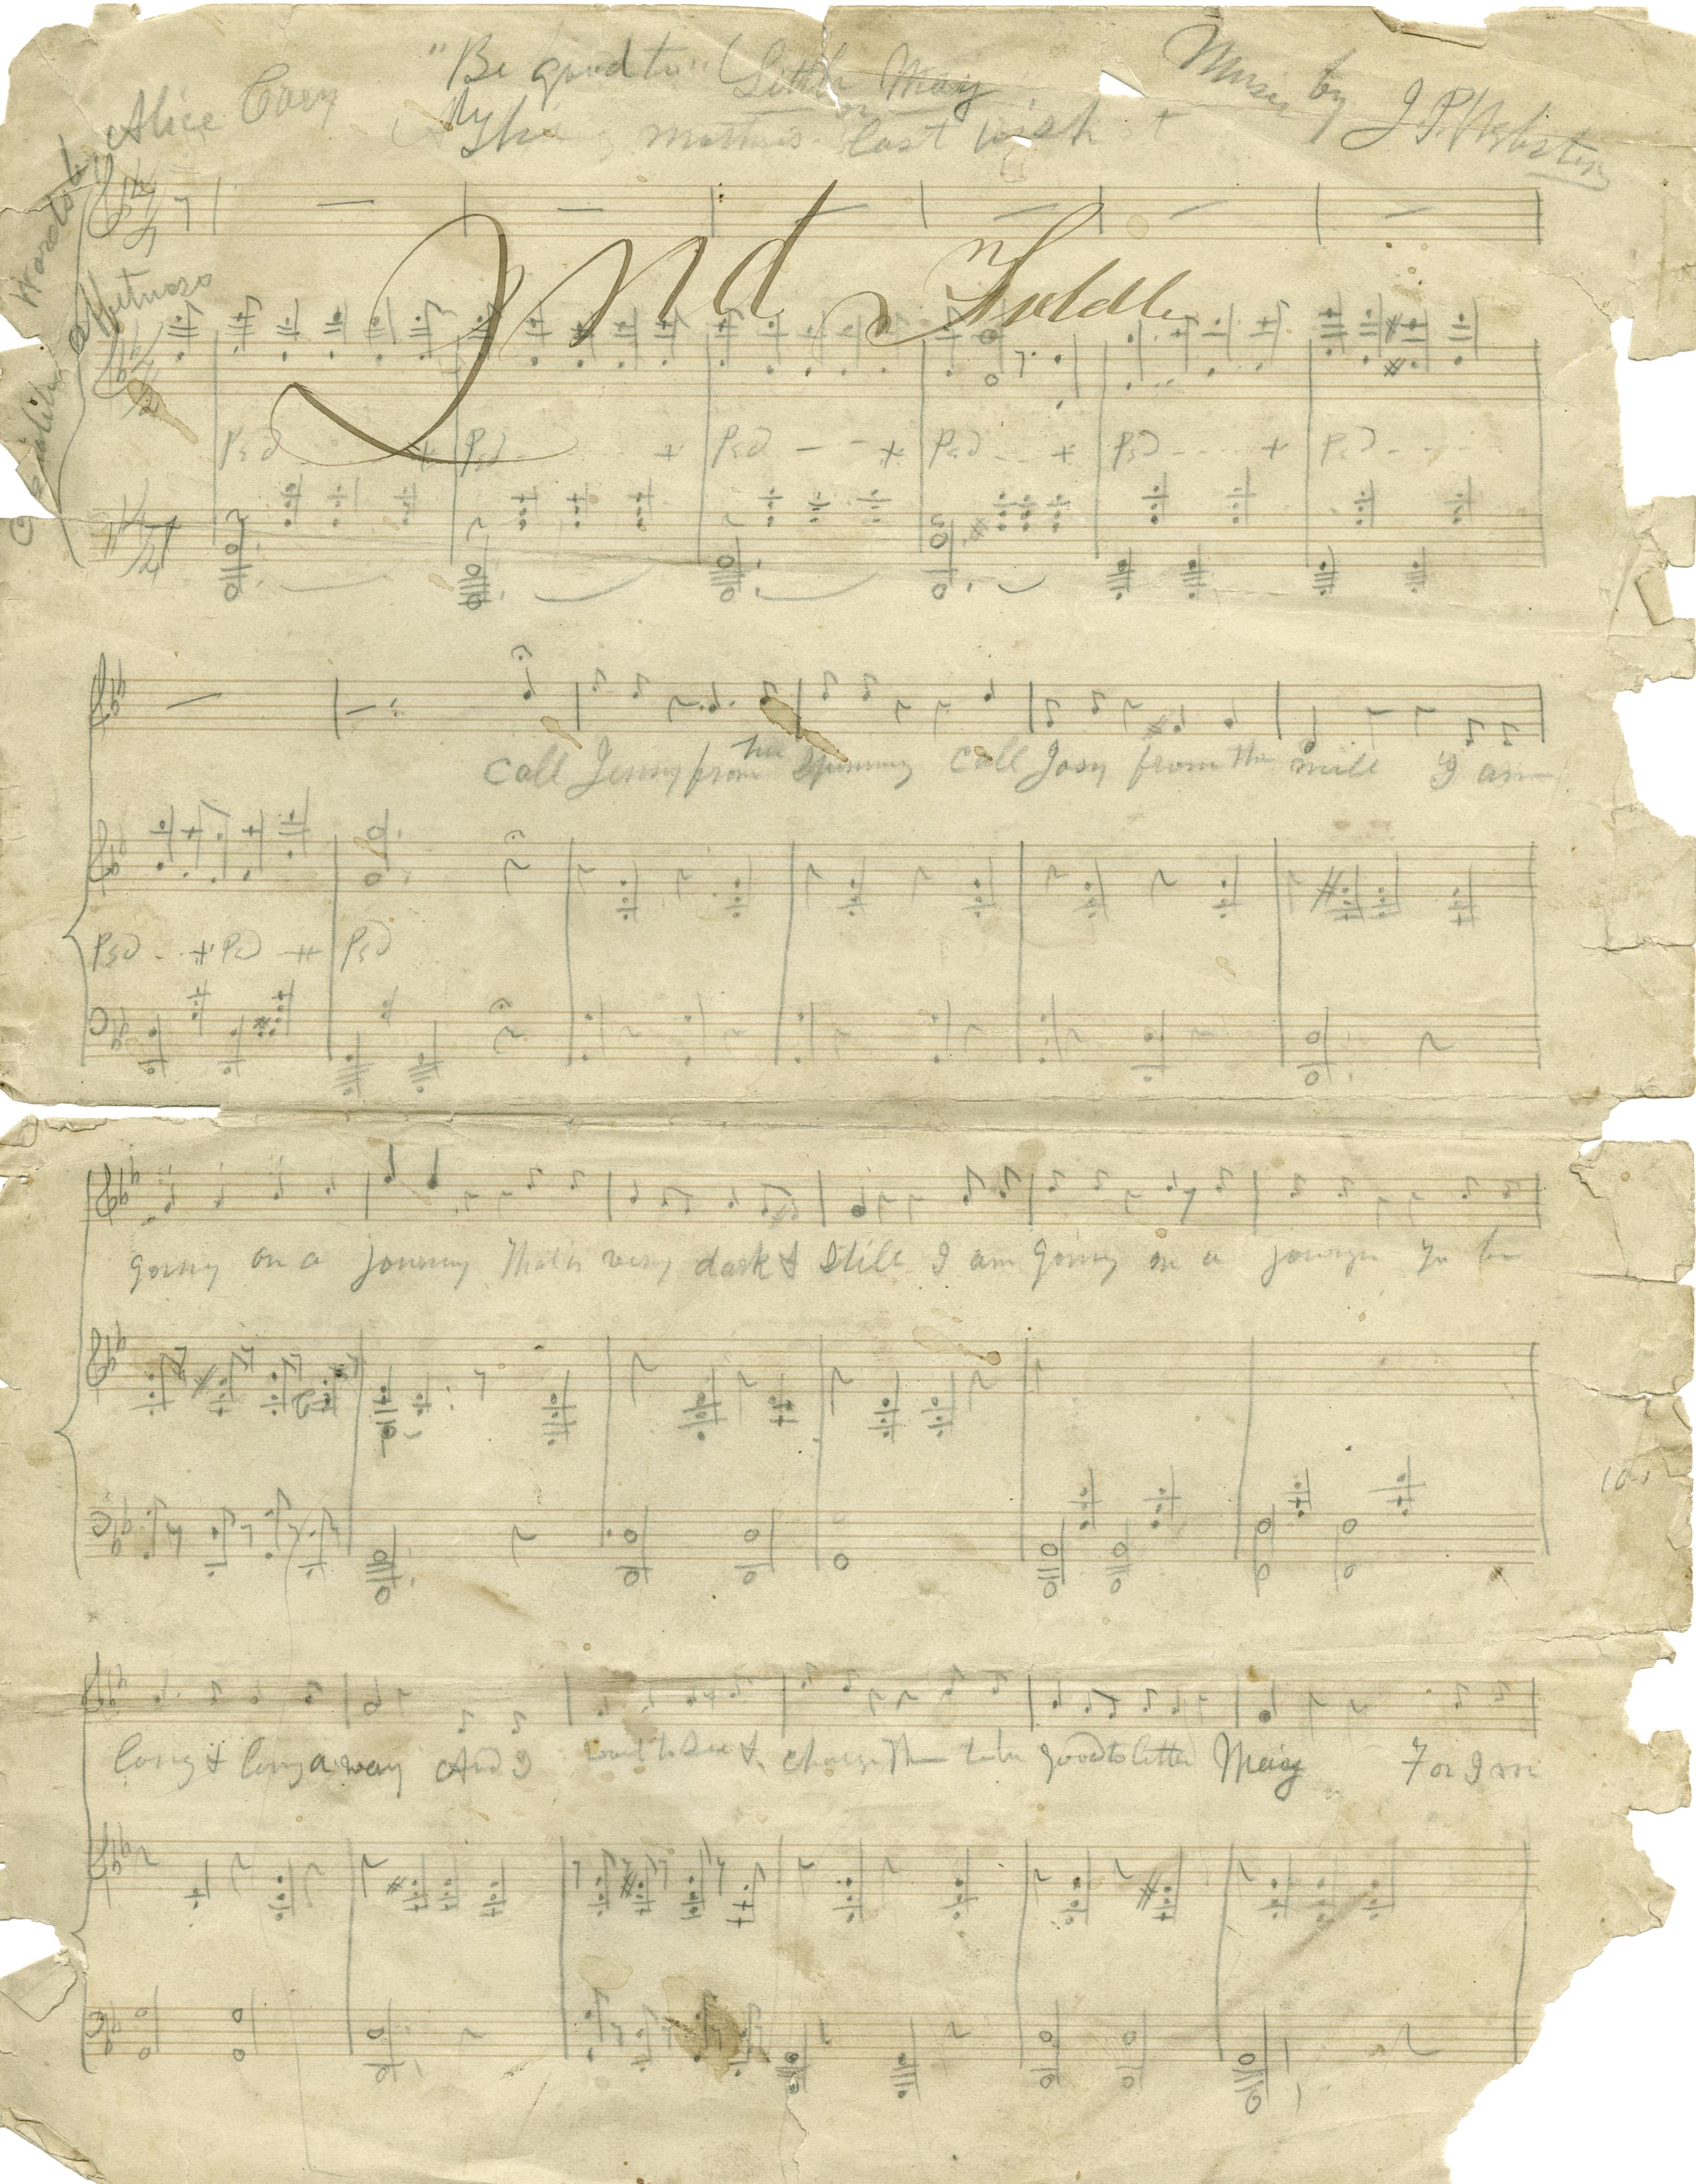 "Be good to" Little May
Music by J. P. Webster
Words by Alice Cary
mother's last wish
2nd Fiddle
Ped + Ped + Ped + Ped + Ped + Ped
Call Jenny from the spinning Call Josy from the mill I am
Ped + Ped + Ped
going on a journey That is very dark & still I am going on a journey To be
long & long away And I want to see & charge them to be good to little May For I am